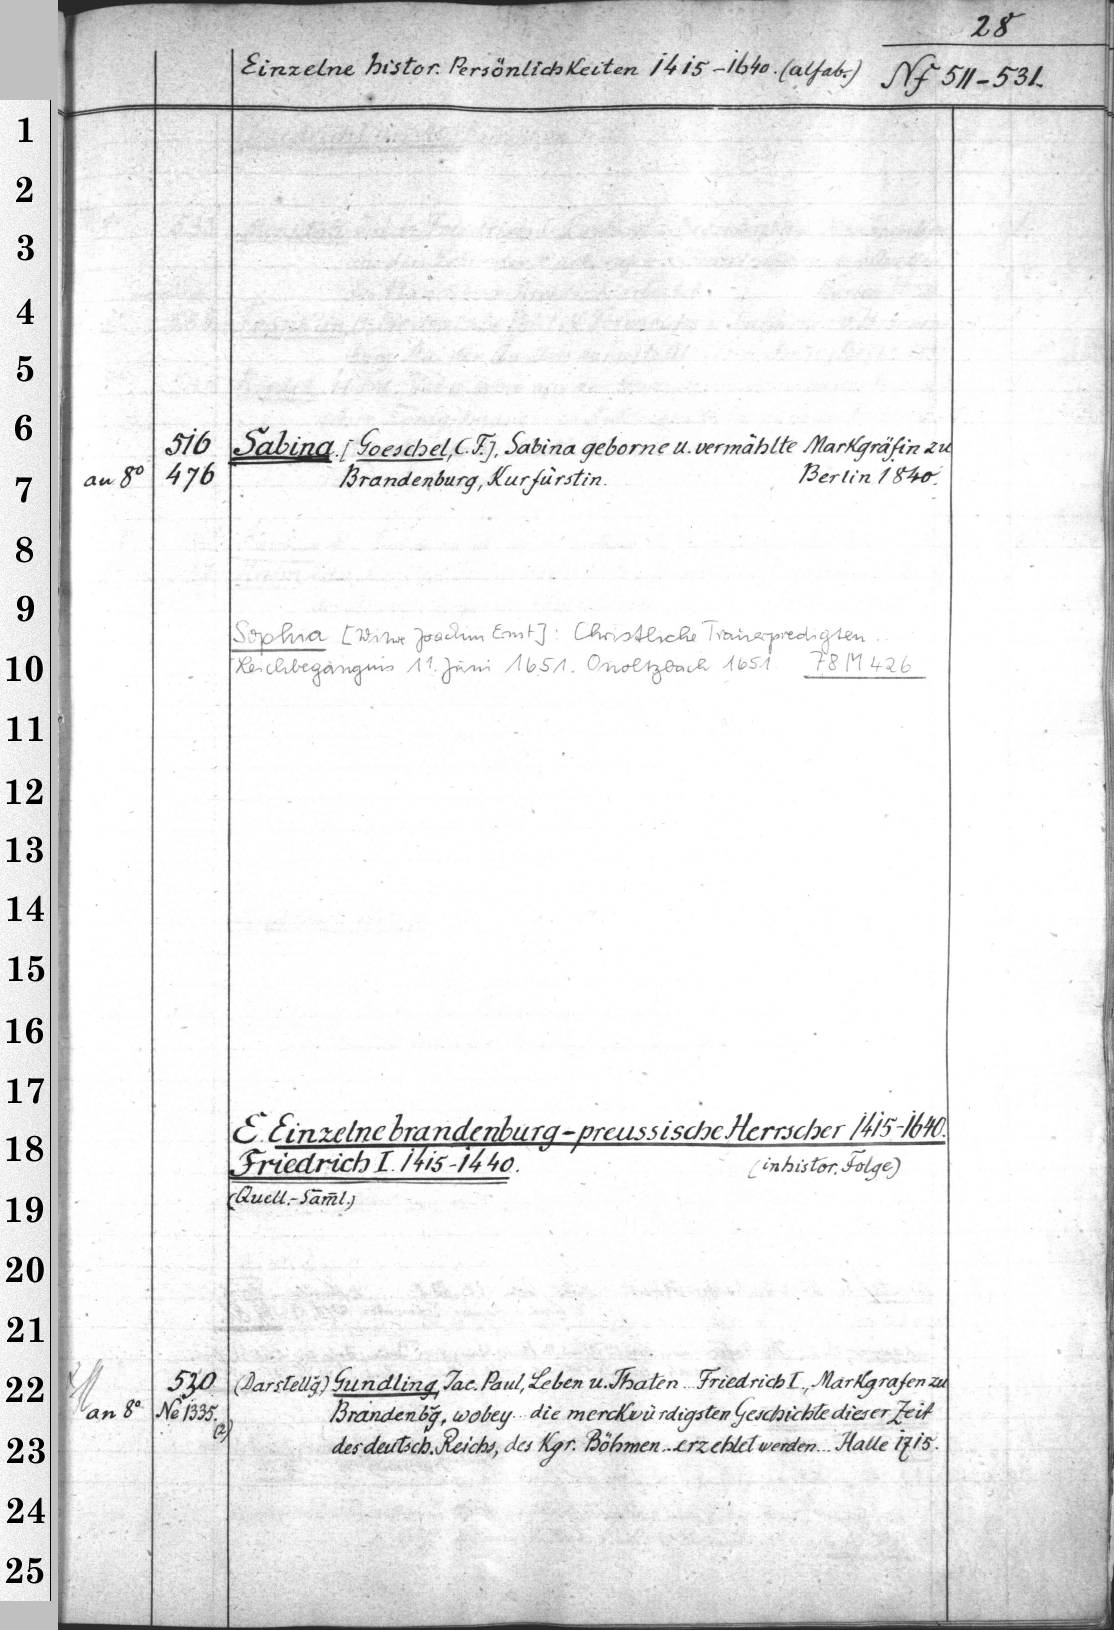 28
Einzelne histor. Persönlichkeiten 1415-1640. (alfab.) Nf 511-531.
1
2
3
4
5
6
516 Sabina. [Goeschel, C. F.], Sabina geborne u. vermählte Markgräfin zu
7
an 8° 476 Brandenburg, Kurfürstin. Berlin 1840.
8
9
Sophia [Witwe Joachim Ernst]: Christliche Trauerpredigten ..
10
Leichbegängnis 11. Juni 1651. Onoltzbach 1651 78 M 426
11
12
13
14
15
16
17
E. Einzelne brandenburg-preussische Herrscher 1415-1640.
18
Friedrich I. 1415-1440. (in histor. Folge)
(Quell.-Sam̄l.)
19
20
21
22
520 (Darstellg̃) Gundling, Jac. Paul, Leben u. Thaten .. Friedrich I., Markgrafen zu
an 8° Ne 1335. (2) Brandenbg̃, wobey .. die merckwürdigsten Geschichte dieser Zeit
23
des deutsch. Reichs, des Kgr. Böhmen .. erzehlet werden... Halle 1715.
24
25